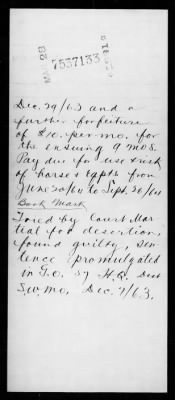 7537133
Dec. 29/63 and a
further forfeiture
of $10. per mo. for
the ensuing 9 mos.
Pay due for use & risk
of horse & eqpts from
June 30/64 to Sept. 20/64
Book Mark
Tried by Court Mar-
tial for desertion,
found guilty, sen-
tence promulgated
in G.O. 57 H.Q. Dist
S.W. Mo. Dec. 7/63.